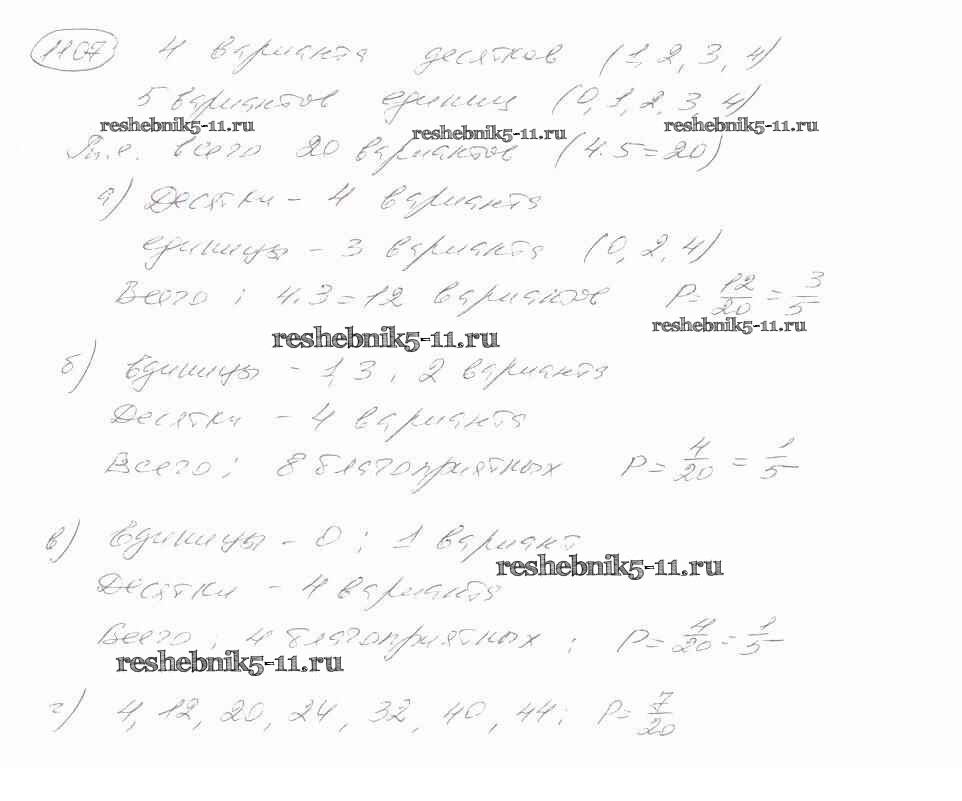 1107 4 варианта десятков (1, 2, 3, 4)
5 вариантов единиц (0, 1, 2, 3, 4)
reshebnik5-11.ru reshebnik5-11.ru reshebnik5-11.ru
Т.е. всего 20 вариантов (4·5=20)
а) Десятки - 4 варианта
единицы - 3 варианта (0, 2, 4)
Всего: 4·3=12 вариантов P=12/20=3/5
reshebnik5-11.ru reshebnik5-11.ru
б) Единицы - 1,3, 2 варианта
Десятки - 4 варианта
Всего: 8 благоприятных P=4/20=1/5
в) Единицы - 0; 1 вариант
reshebnik5-11.ru
Десятки - 4 варианта
Всего: 4 благоприятных; P=4/20=1/5
reshebnik5-11.ru
г) 4, 12, 20, 24, 32, 40, 44; P=7/20